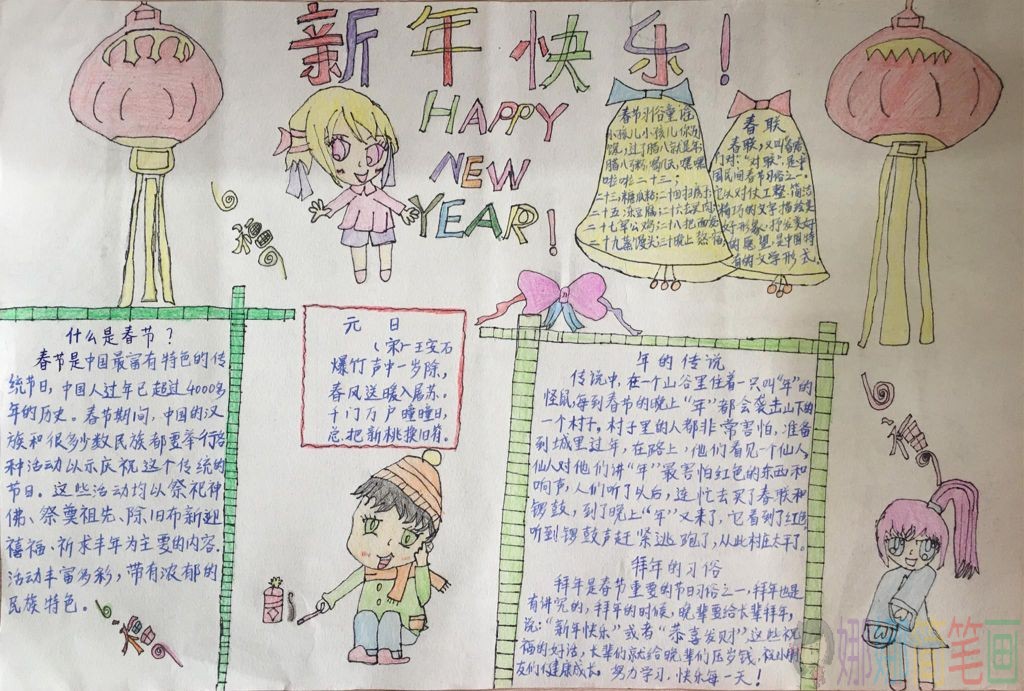 新年快乐!
HAPPY
NEW
YEAR!
春节习俗童谣
小孩儿小孩儿你别
馋,过了腊八就是年,
腊八粥,喝几天,哩哩
啦啦二十三;
二十三,糖瓜粘;二十四扫房子;
二十七宰公鸡;二十八把面发
二十九蒸馒头;三十晚上熬
春联
春联,又叫春贴
门对,"对联",是中
国民间春节习俗之一,
它以对仗工整、简洁
精巧的文字描绘美
好形象,抒发美好
的愿望,是中国特
有的文学形式.
福
什么是春节?
春节是中国最富有特色的传
统节日,中国人过年已超过4000多
年的历史。春节期间,中国的汉
族和很多少数民族都要举行各
种活动以示庆祝这个传统的
节日。这些活动均以祭祝神
佛、祭奠祖先、除旧布新迎
禧福、祈求丰年为主要的内容.
活动丰富多彩,带有浓郁的
民族特色。
福
元日
(宋)-王安石
爆竹声中一岁除,
春风送暖入屠苏.
千门万户曈曈日,
总把新桃换旧符.
年的传说
传说中,在一个山谷里住着一只叫"年"的
怪鼠,每到春节的晚上"年"都会袭击山下的
一个村子。村子里的人都非常害怕,准备
到城里过年,在路上,他们看见一个仙人,
仙人对他们讲"年"最害怕红色的东西和
响声,人们听了以后,连忙去买了春联和
锣鼓,到了晚上"年"又来了,它看到了红色
听到锣鼓声赶紧逃跑了,从此村庄太平了.
拜年的习俗
拜年是春节重要的节日习俗之一,拜年也是
有讲究的,拜年的时候,晚辈要给长辈拜年,
说:"新年快乐"或者"恭喜发财"这些祝
福的好话,长辈们就给晚辈们压岁钱,祝小朋
友们健康成长,努力学习,快乐每一天!
福
笔画